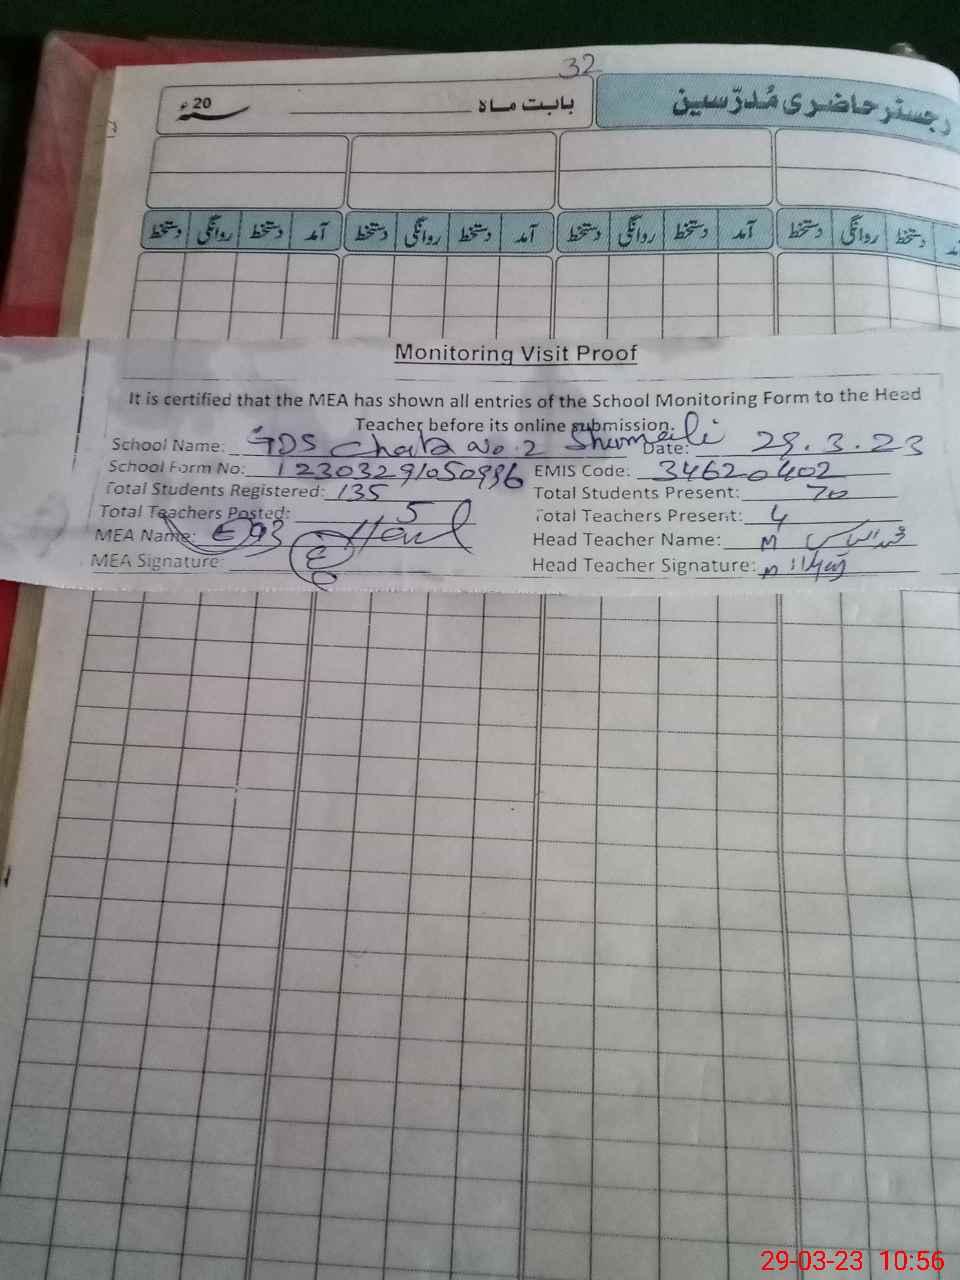 32
رجسٹر حاضری مُدرّسین بابت ماہ ____ 20ء
آمد دستخط روانگی دستخط آمد دستخط روانگی دستخط آمد دستخط روانگی دستخط آمد دستخط روانگی دستخط
Monitoring Visit Proof
It is certified that the MEA has shown all entries of the School Monitoring Form to the Head
Teacher before its online submission.
School Name: GDS Chak No. 2 Shumali Date: 29.3.23
School Form No: EMIS Code: 34620402
Total Students Registered: 135 Total Students Present: 70
Total Teachers Posted: 5 Total Teachers Present: 4
MEA Name: Head Teacher Name: M
MEA Signature: Head Teacher Signature:
29-03-23 10:56